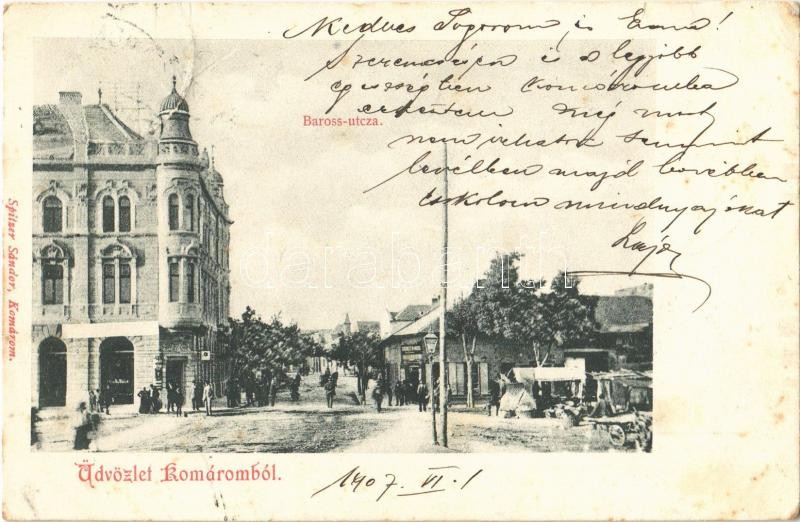 Kedves Sogorom és Erna!
szerencsésen és a legjobb
egességben Komáromba
érkeztem még most
nem irhatok semmit
levélben majd bővebben
Csókolom mindnyájókat
Lajos
Baross-utcza.
Spitzer Sándor, Komárom.
Üdvözlet Komáromból.
1907. VI. 1
darabanth